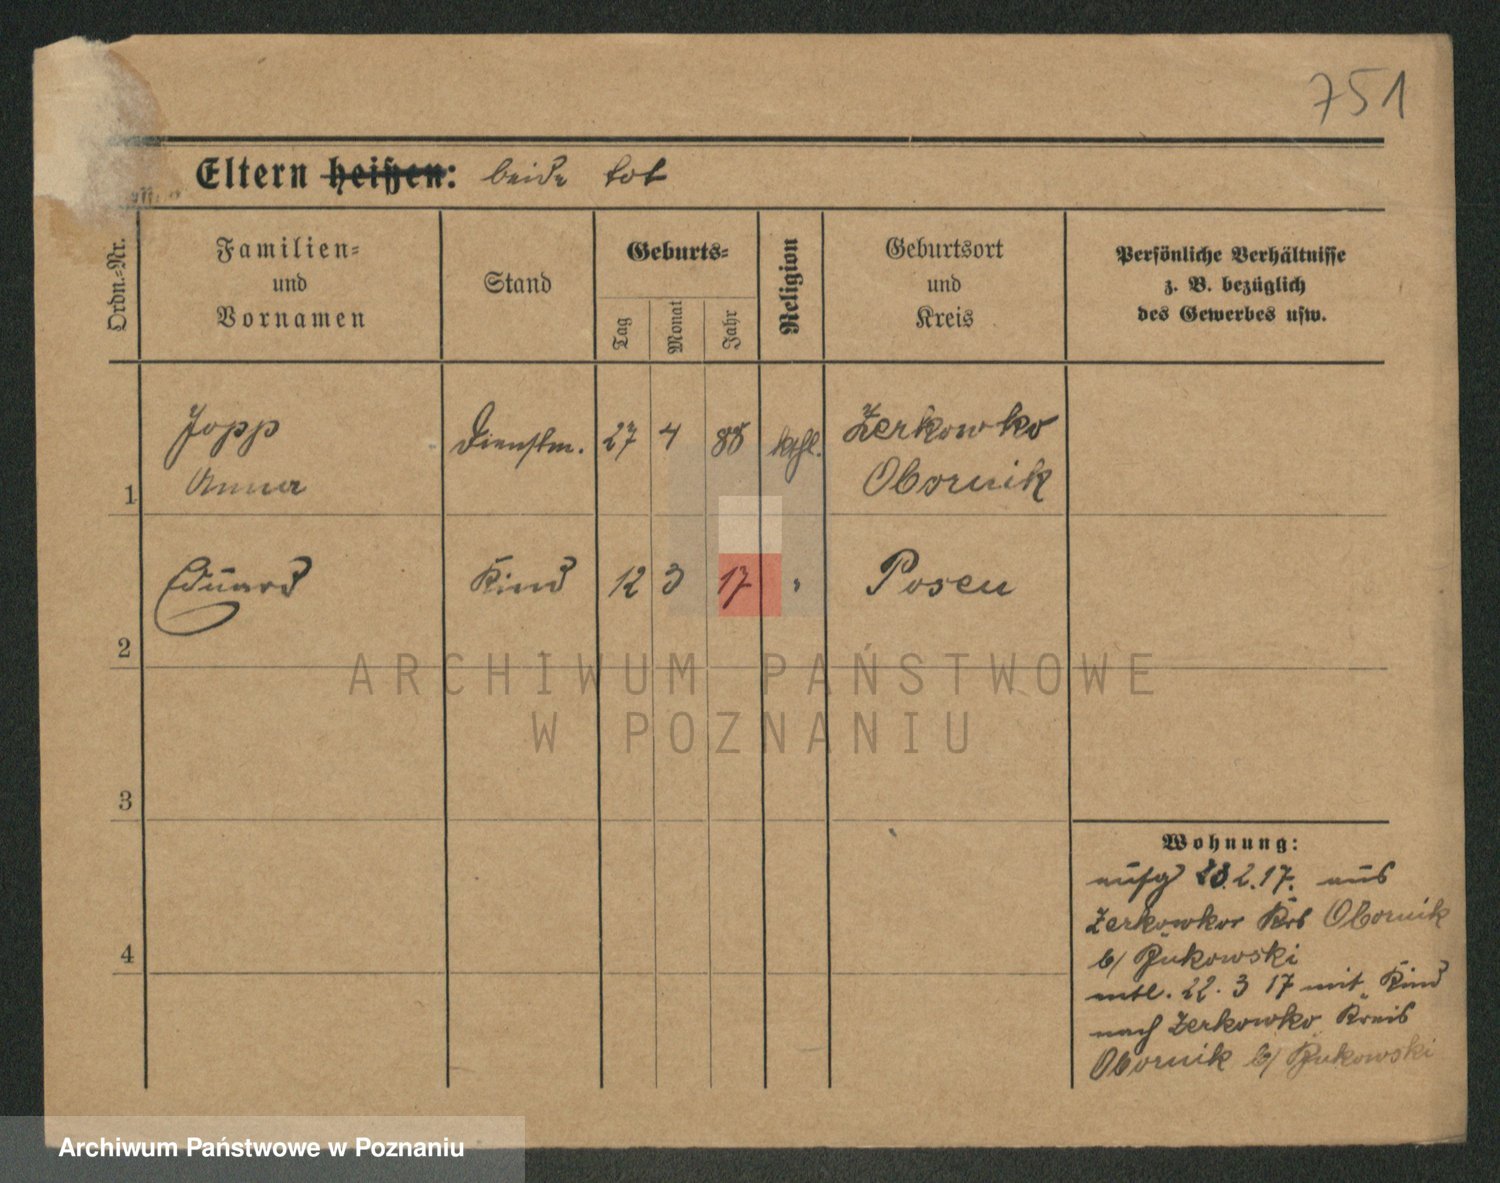 751
Eltern heißen: beide tot
Ordn.-Nr.
Familien-
und
Vornamen
Stand
Geburts-
Tag
Monat
Jahr
Religion
Geburtsort
und
Kreis
Persönliche Verhältnisse
z. B. bezüglich
des Gewerbes usw.
1
Jopp
Anna
Dienstm.
27 4 88
kthl.
Zerkowko
Obornik
2
Eduard
Kind
12 3 17
"
Posen
ARCHIWUM PAŃSTWOWE
W POZNANIU
3
4
Wohnung:
aufg 23.2.17. aus
Zerkowkor Krs Obornik
b/ Żukowski
entl. 22. 3 17 mit Kind
nach Zerkowko Kreis
Obornik b/ Żukowski
Archiwum Państwowe w Poznaniu